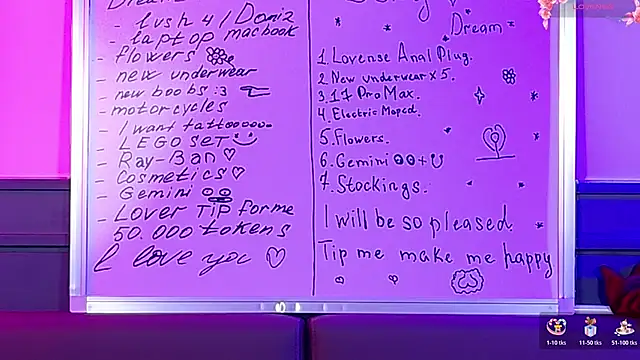 - lush 4 / Domi 2
- laptop macbook
- flowers
- new underwear
- new boobs :3
- motorcycles
- I want tattooooooo
- LEGO SET
- Ray-Ban
- Cosmetics
- Gemini
- Lover TIP for me
50.000 tokens
I love you
Dream
1. Lovense Anal Plug.
2. New underwear x 5.
3. 17 Pro Max.
4. Electric Moped.
5. Flowers.
6. Gemini
7. Stockings.
I will be so pleased.
Tip me make me happy
1-10 tks
11-50 tks
51-100 tks